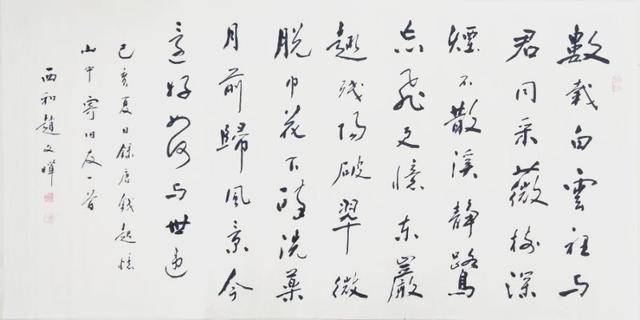 數載白雲裡与
君同采薇樹深
煙不散溪静鷺
忘飛更憶東巖
趣残陽破翠微
脱巾花下醉洗藥
月前歸風景今
還好如何与世違
己亥夏日録唐錢起憶
山中寄旧友一首
西和趙文暉